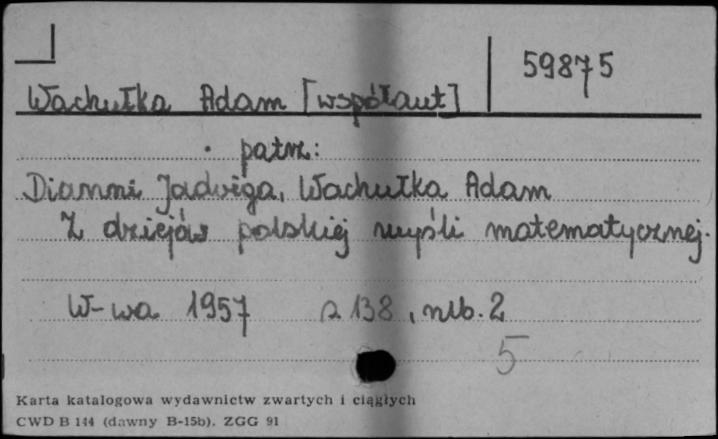 59875
Wachułka Adam [współaut]
patrz:
Dianni Jadwiga, Wachułka Adam
Z dziejów polskiej myśli matematycznej.
W-wa 1957 s 138, nlb. 2
5
Karta katalogowa wydawnictw zwartych i ciągłych
CWD B 144 (dawny B-15b). ZGG 91